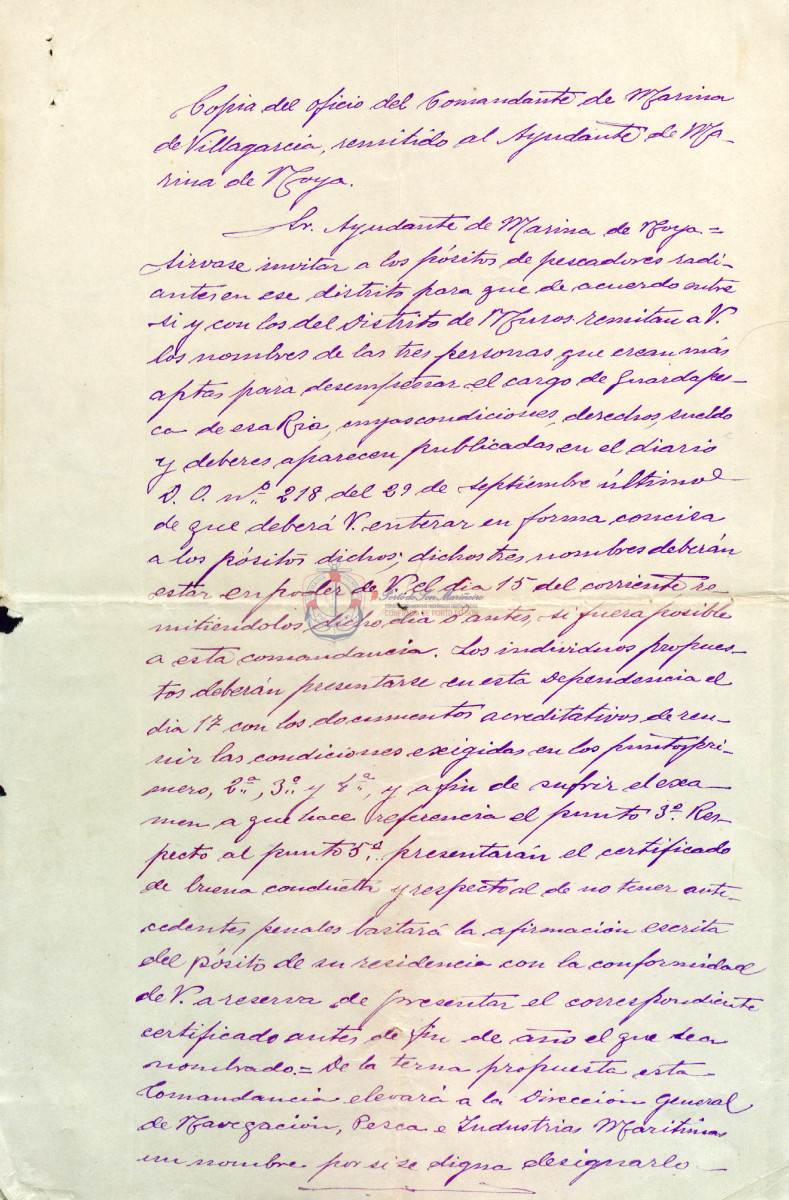 Copia del oficio del Comandante de Marina
de Villagarcía, remitido al Ayudante de Ma-
rina de Noya.
Sr. Ayudante de Marina de Noya.=
Sirvase invitar a los pósitos de pescadores radi-
antes en ese distrito para que de acuerdo entre
si y con los del Distrito de Muros remitan a V.
los nombres de las tres personas que crean más
aptas para desempeñar el cargo de Guardapes-
ca de esa Ria, cuyas condiciones, derechos, sueldo
y deberes aparecen publicadas en el diario
D. O. nº. 218 del 29 de Septiembre último
de que deberá V. enterar en forma concisa
a los pósitos dichos; dichos tres nombres deberán
estar en poder de V. el dia 15 del corriente re-
mitiéndolos, dicho dia o antes, si fuera posible
a esta comandancia. Los individuos propues-
tos deberán presentarse en esta Dependencia el
dia 17 con los documentos acreditativos de reu-
nir las condiciones exigidas en los puntos pri-
mero, 2ª., 3º. y 4ª., y a fin de sufrir el exa-
men a que hace referencia el punto 3º. Res-
pecto al punto 5º. presentarán el certificado
de buena conducta y respecto al de no tener ante-
cedentes penales bastará la afirmación escrita
del pósito de su residencia con la conformidad
de V. a reserva de presentar el correspondiente
certificado antes de fin de año el que sea
nombrado.= De la terna propuesta esta
Comandancia elevará a la Dirección General
de Navegación, Pesca e Industrias Maritimas
un nombre por si se digna designarlo
Porto do Son Mariñeiro
CONFRARÍA DE PORTO DO SON